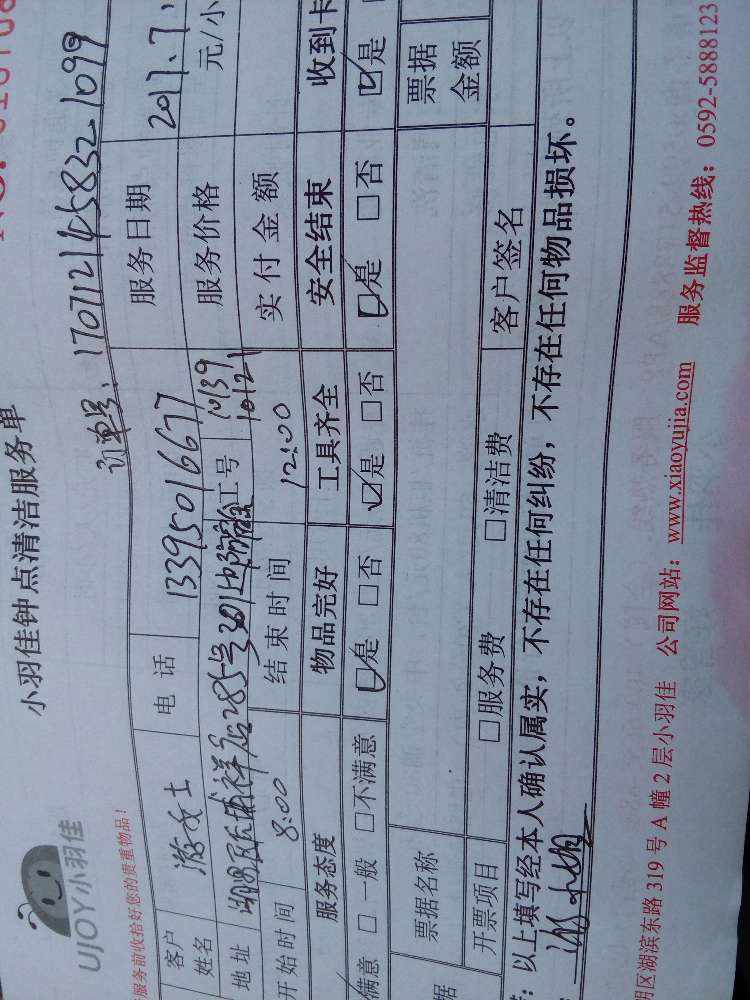 UJOY小羽佳
小羽佳钟点清洁服务单
服务前收拾好您的贵重物品!
订单号:170712145832 1099
客户姓名 游女士 电话 13395016677 服务日期 2017.7.
地址 285号301 工号 10139 10121 服务价格 元/小
开始时间 8:00 结束时间 12:00 实付金额
服务态度 物品完好 工具齐全 安全结束 收到卡
满意 □一般 □不满意 ☑是 □否 ☑是 □否 ☑是 □否 ☑是
票据名称 票据金额
开票项目 □服务费 □清洁费 客户签名
以上填写经本人确认属实,不存在任何纠纷,不存在任何物品损坏。
明区湖滨东路 319 号 A 幢 2 层小羽佳 公司网站:www.xiaoyujia.com 服务监督热线:0592-5888123